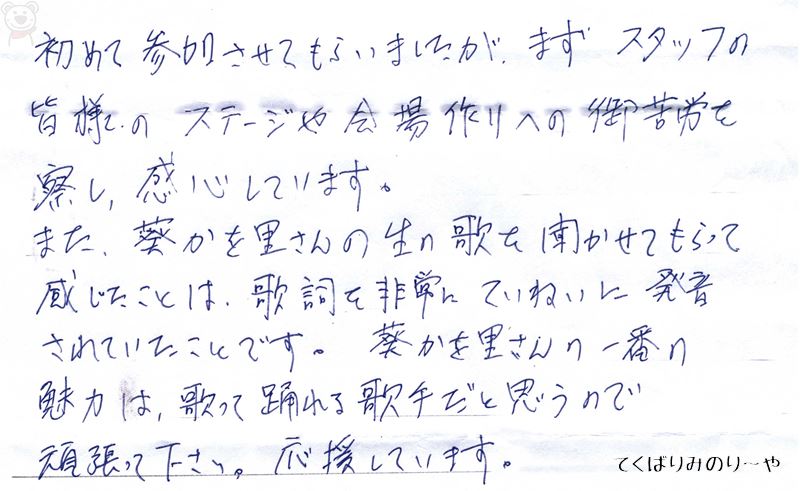 初めて参加させてもらいましたが、まず スタッフの
皆様の ステージや会場作りへの御苦労を
察し、感心しています。
また、葵かを里さんの生の歌を聞かせてもらって
感じたことは、歌詞を非常にていねいに発音
されていたことです。 葵かを里さんの一番の
魅力は、歌って踊れる歌手だと思うので
頑張って下さい。応援しています。
てくばりみのり〜や